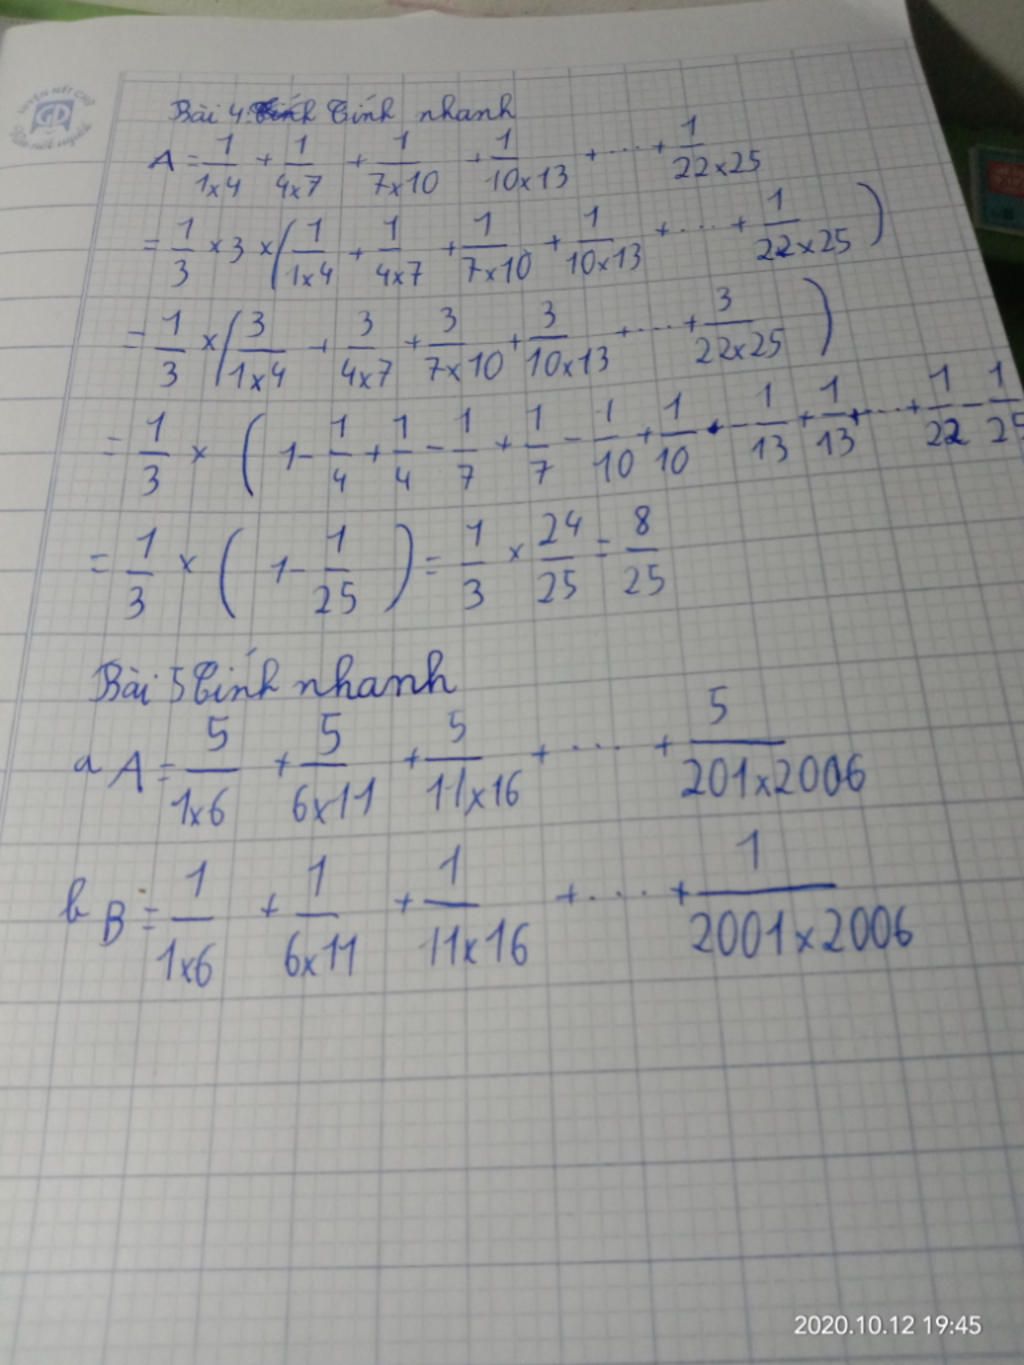 LUYỆN NÉT CHỮ
Bài 4: Tính nhanh
A = 1/1x4 + 1/4x7 + 1/7x10 + 1/10x13 + .... + 1/22x25
= 1/3 x 3 x (1/1x4 + 1/4x7 + 1/7x10 + 1/10x13 + .... + 1/22x25)
= 1/3 x (3/1x4 + 3/4x7 + 3/7x10 + 3/10x13 + .... + 3/22x25)
= 1/3 x (1 - 1/4 + 1/4 - 1/7 + 1/7 - 1/10 + 1/10 - 1/13 + 1/13 + .... + 1/22 - 1/25
= 1/3 x (1 - 1/25) = 1/3 x 24/25 = 8/25
Bài 5 Tính nhanh
a A = 5/1x6 + 5/6x11 + 5/11x16 + .... + 5/201x2006
b B = 1/1x6 + 1/6x11 + 1/11x16 + .... + 1/2001x2006
2020.10.12 19:45